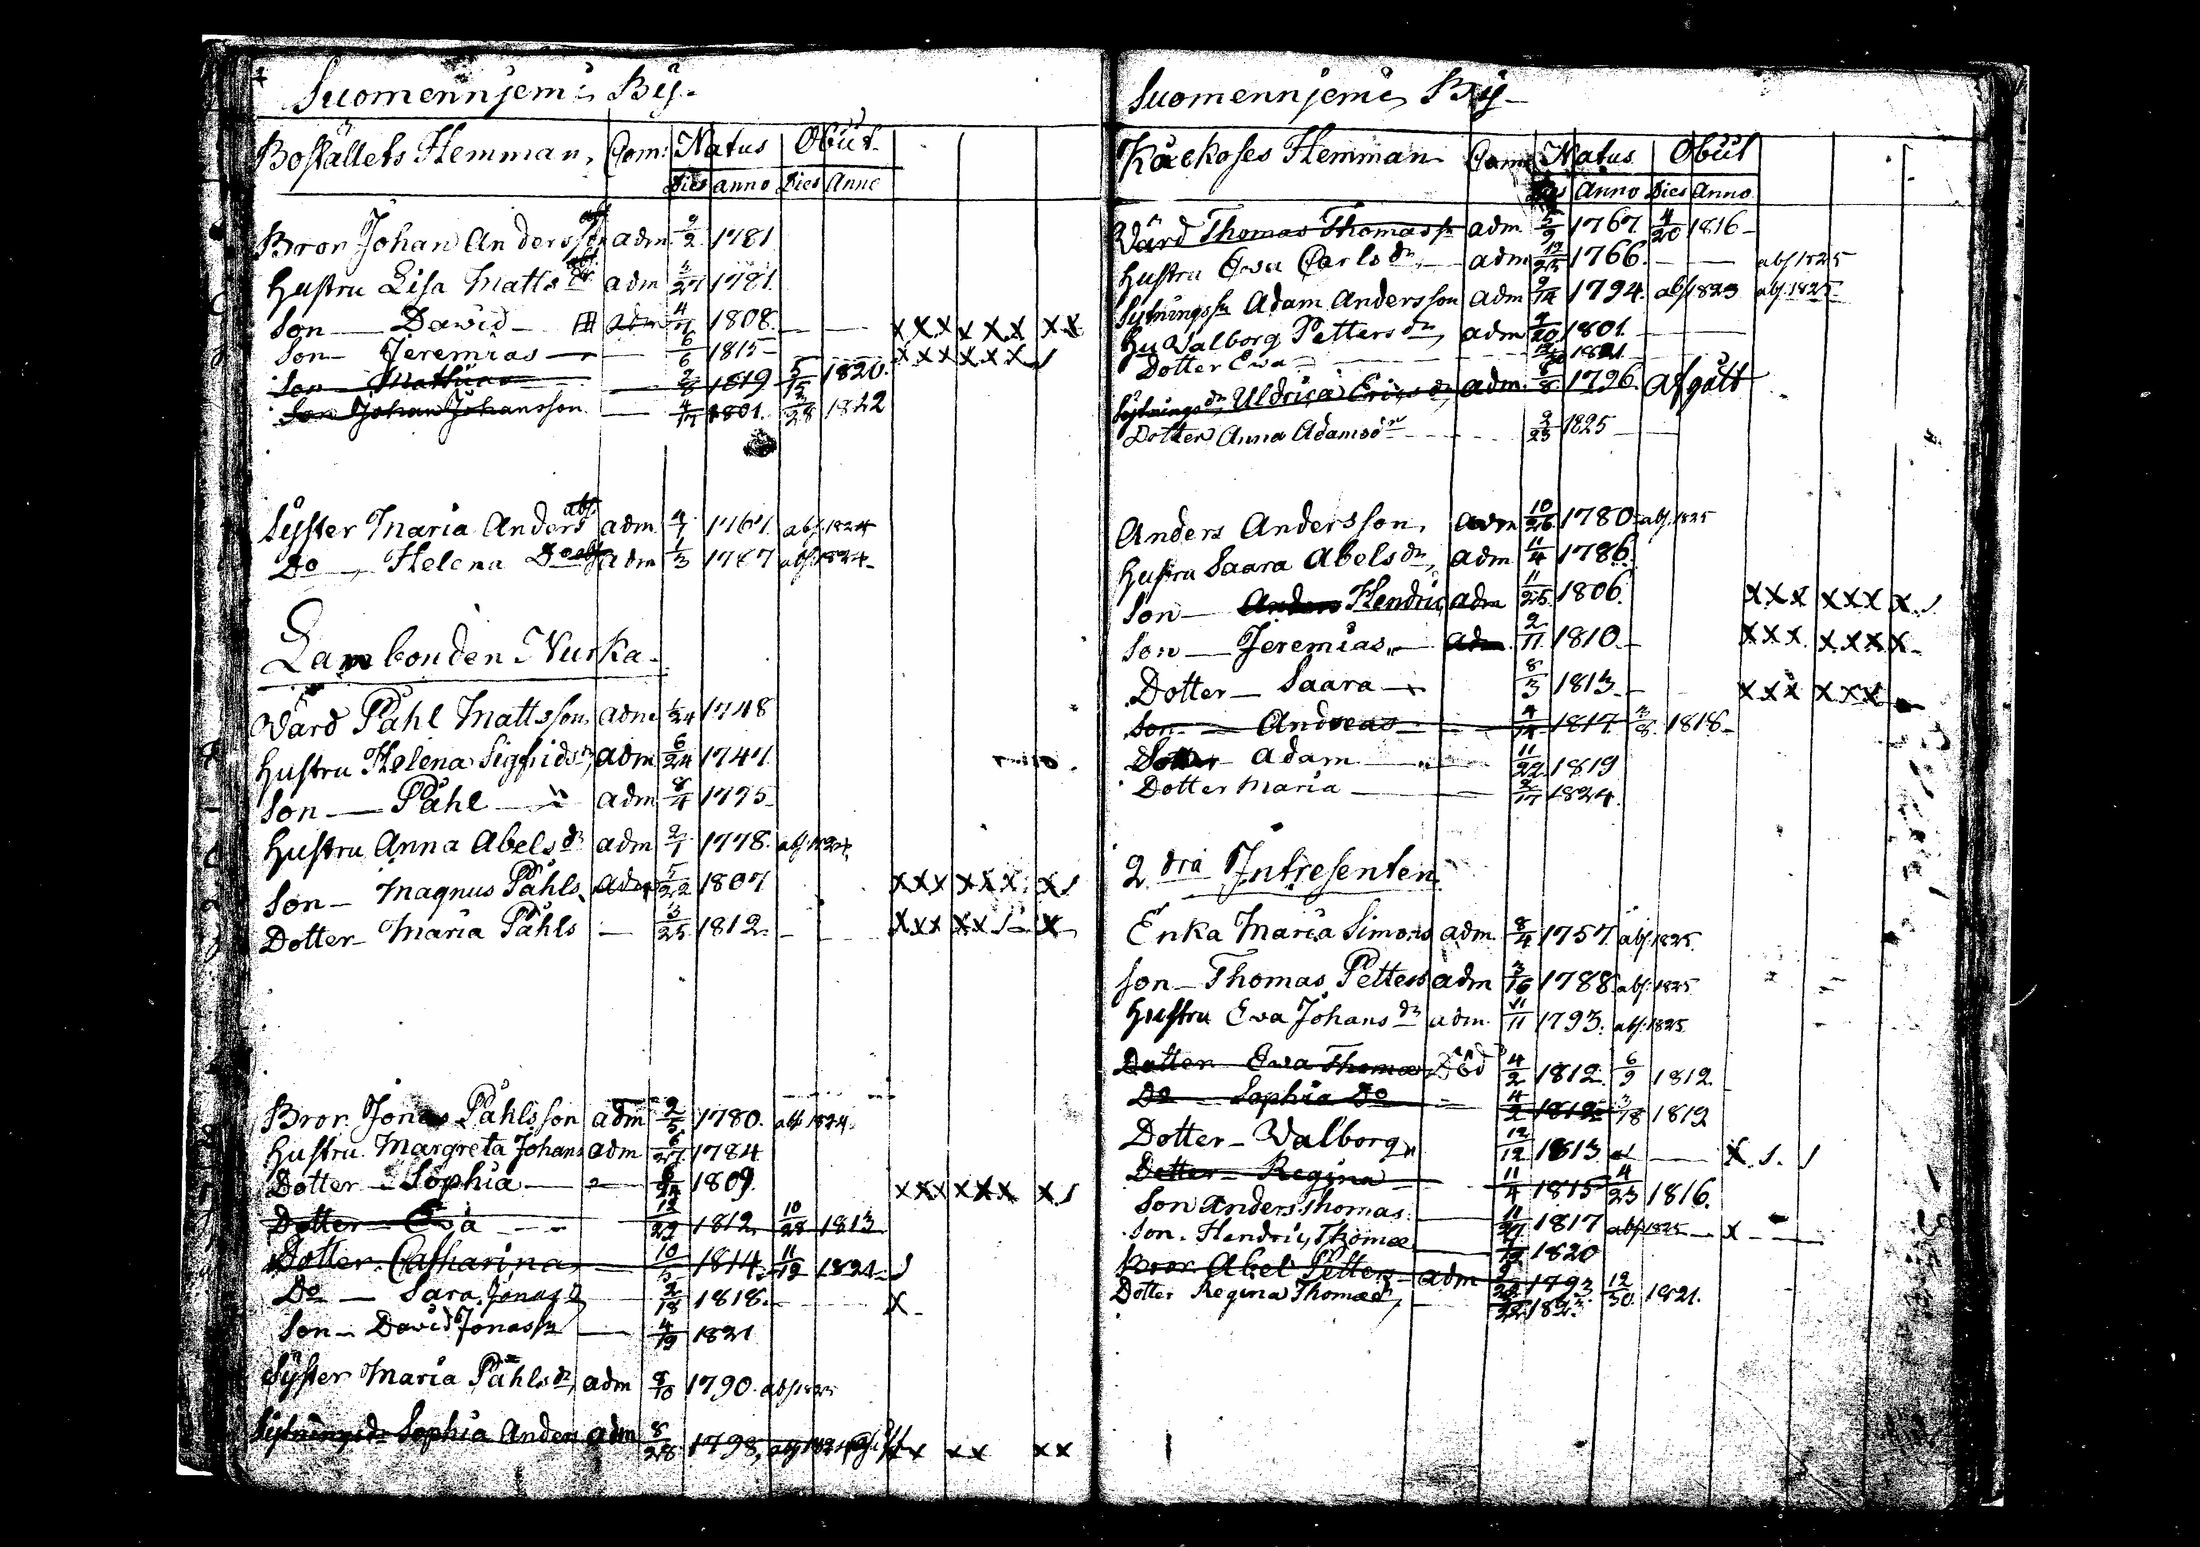 Suomennjemi By.
Boställets Hemman. Com: Natus Obiit
Dies anno Dies Anno
Bror Johan Andersson abs adm 9/2 1781
Hustru Lisa Matts dr abs. adm 3/27 1781.
Son — David adm 1808. — — xxx xxx xx
Son — Jeremias — 6/6 1815 xxx xxx
Son 1819 5/15 1820.
Son Johan Johansson — 1801. 2/28 1822
Syster Maria Anders abs. adm 1767 abs. 1824
Do — Helena Do abs adm 1/3 1787 abs. 1824
Lambonden Nurka
Värd Påhl Mattsson, adm 1/24 1748
Hustru Helena Sigfrids dr, adm 6/24 1747
Son — Påhl — adm 8/4 1775
Hustru Anna Abels dr adm 2/1 1778. abs. 1824.
Son — Magnus Påhls. adm 5/22 1807 xxx xxx x
Dotter — Maria Påhls — 3/25 1812. — — xxx xx x
Bror Jonas Påhlsson adm 2/5 1780. abs 1824.
Hustru Margreta Johans adm 6/27 1784
Dotter — Sophia — 1809. xxx xxx x
Dotter — Eva 12/29 1812 10/28 1813
Dotter Catharina 1814 11/12 1821
Do — Sara Jonas d 2/18 1818. x
Son — David Jonass. — 4/19 1821
Syster Maria Påhls dr, adm 8/10 1790. abs 1825
Sytnings dr Sophia Anders adm 8/28 1798, xx xx
Suomennjemi By
Käckoses Hemman Com Natus Obiit
Dies Anno Dies Anno
Värd Thomas Thomass. adm 5/9 1767 4/20 1816
Hustru Eva Carls dr, adm 12/25 1766. — — abs 1825
Sytnings Adam Andersson adm 9/14 1794. abs 1823 abs. 1825.
Hu Valborg Petters dr, adm 1801. —
Dotter Eva 1821
Sytnings dr, Uldrica Erics dr, adm 8/8 1796. afgått
Dotter Anna Adamsdr 2/23 1825
Anders Andersson, adm 10/26 1780 abs. 1825
Hustru Saara Abels dr, adm 11/4 1786.
Son — Anders Hendric adm 11/25 1806. xxx xxx x
Son — Jeremias — adm 2/11 1810 xxx xxxx
Dotter — Saara 8/3 1813 xxx xxx
Son — Andreas 1817 3/8 1818
Dotter Adam 11/22 1819
Dotter Maria 2/17 1824.
2 dra Intresenten
Enka Maria Simons adm 8/4 1757. abs. 1825.
Son — Thomas Petters adm 3/16 1788 abs. 1825
Hustru Eva Johans dr adm. 11/11 1793. abs. 1825
Dotter Eva Thomæ Död 4/2 1812 6/9 1812
Do — Sophia Do 4/2 1812 3/18 1819
Dotter — Valborg 12/12 1813 x
Dotter — Regina 11/4 1815 4/23 1816.
Son Anders Thomas. 1817 abs 1825 x
Son. Hendric Thomæ 1820
Bror Abel Petters adm 1793 12/30 1821.
Dotter Regina Thomæ 1823